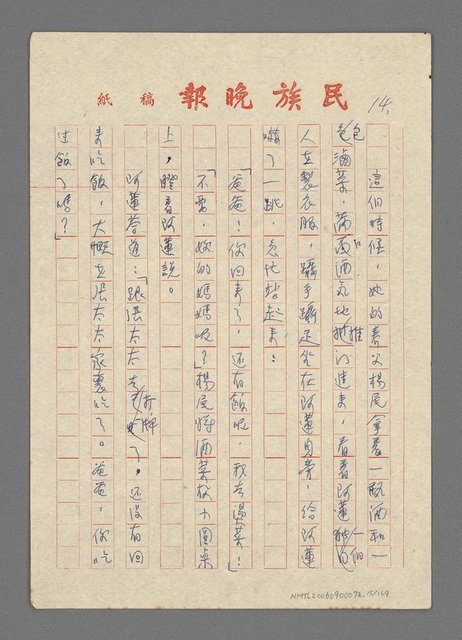 民族晚報 稿紙
14.
這個時候,她的養父楊民拿着一瓶酒和一
包滷菜,滿面酒氣地推門進來,看着阿蓮獨自一個
人在製衣服,躡手躡足坐在阿蓮身旁,給阿蓮
嚇了一跳,急忙站起來:
「爸爸!你回來了,还有飯呢,我去燙菜!」
「不要,妳的媽媽呢?」楊民將酒菜放小圓桌
上,瞪着阿蓮說。
阿蓮答道:「跟張太太去打牌了,还沒有回
來吃飯,大概在張太太家裏吃了。爸爸,你吃
过飯了嗎?」
NMTL20060900072,15/169